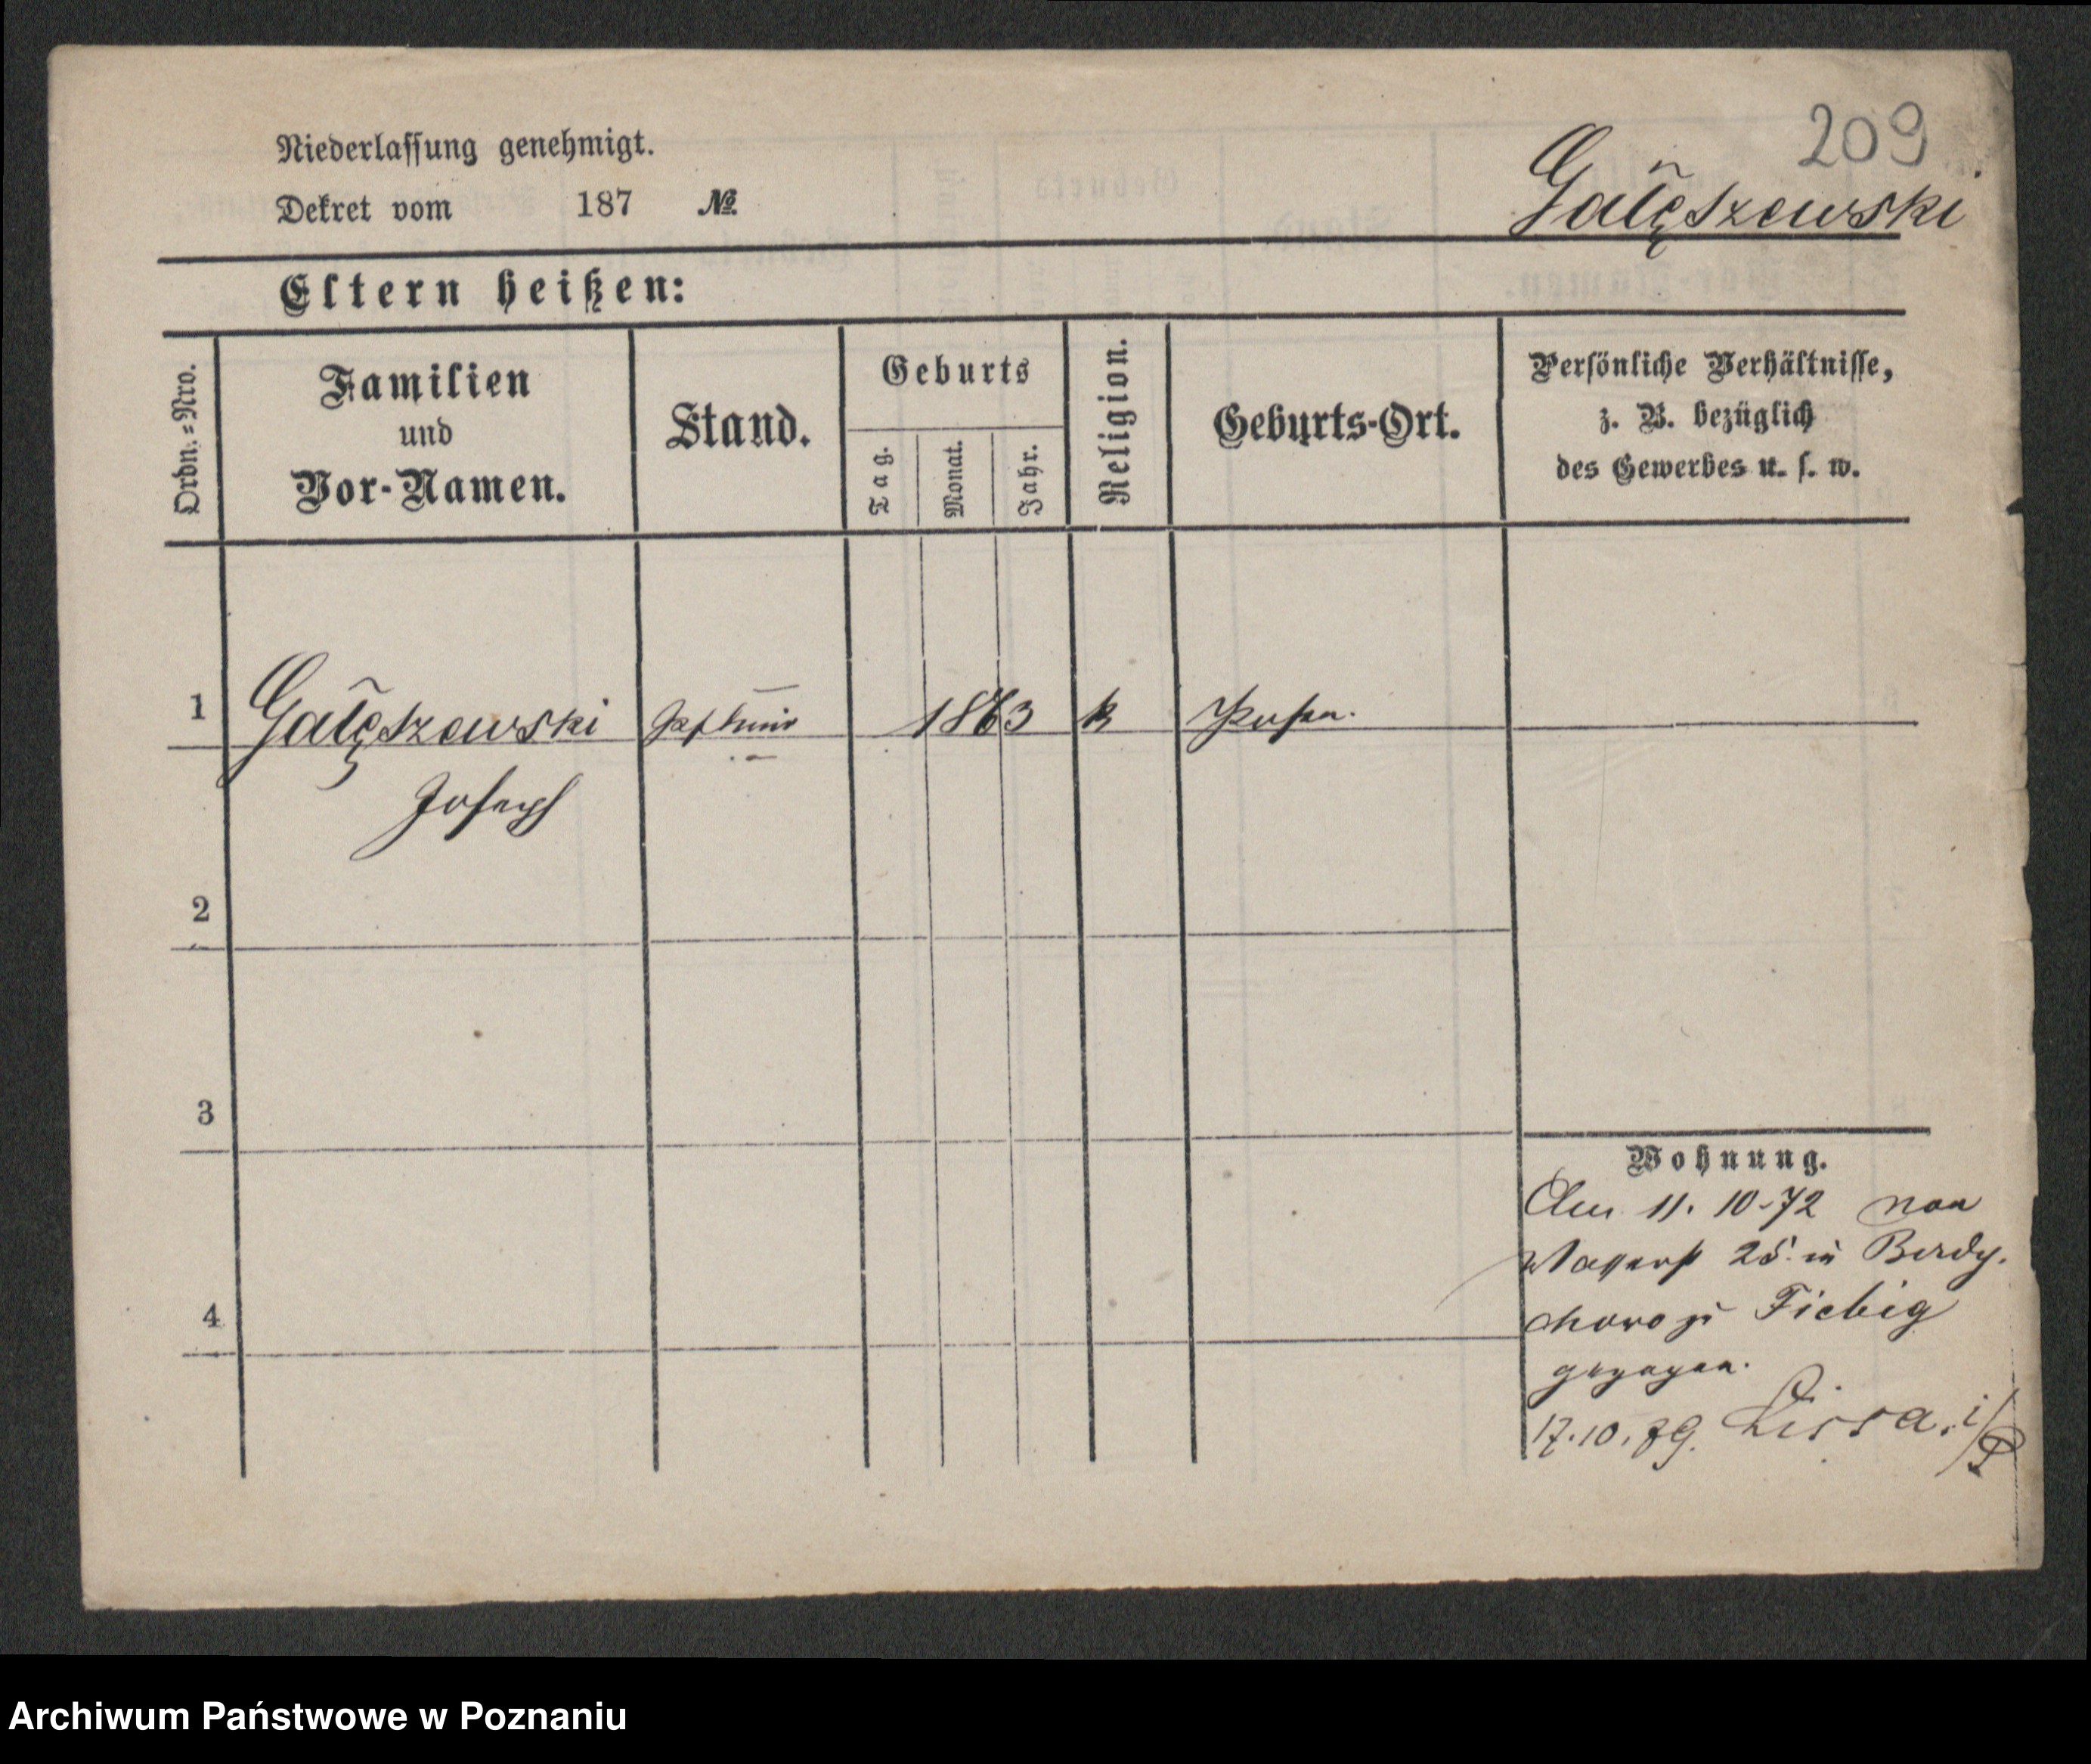 209
Niederlassung genehmigt.
Dekret vom 187 №
Gałęszewski
Eltern heißen:
Ordn.=Nro.
Familien
und
Vor-Namen.
Stand.
Geburts
Tag.
Monat.
Jahr.
Religion.
Geburts-Ort.
Persönliche Verhältnisse,
z. B. bezüglich
des Gewerbes u. s. w.
1 Gałęszewski 1863 k Posen.
Joseph
2
3
4
Wohnung.
Am 11. 10-72 von
Wasserst 25 in Berdy.
chowo zu Fiebig
gezogen.
17.10.89. Lissa. i/P
Archiwum Państwowe w Poznaniu